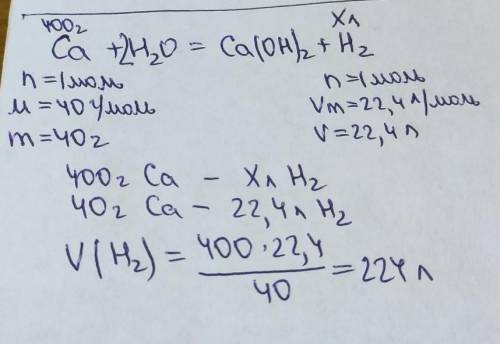 400г Xл
Ca + 2H₂O = Ca(OH)₂ + H₂
n = 1 моль n = 1 моль
M = 40 г/моль Vm = 22,4 л/моль
m = 40г V = 22,4 л
400г Ca – Xл H₂
40г Ca – 22,4л H₂
V(H₂) = 400·22,4 / 40 = 224 л